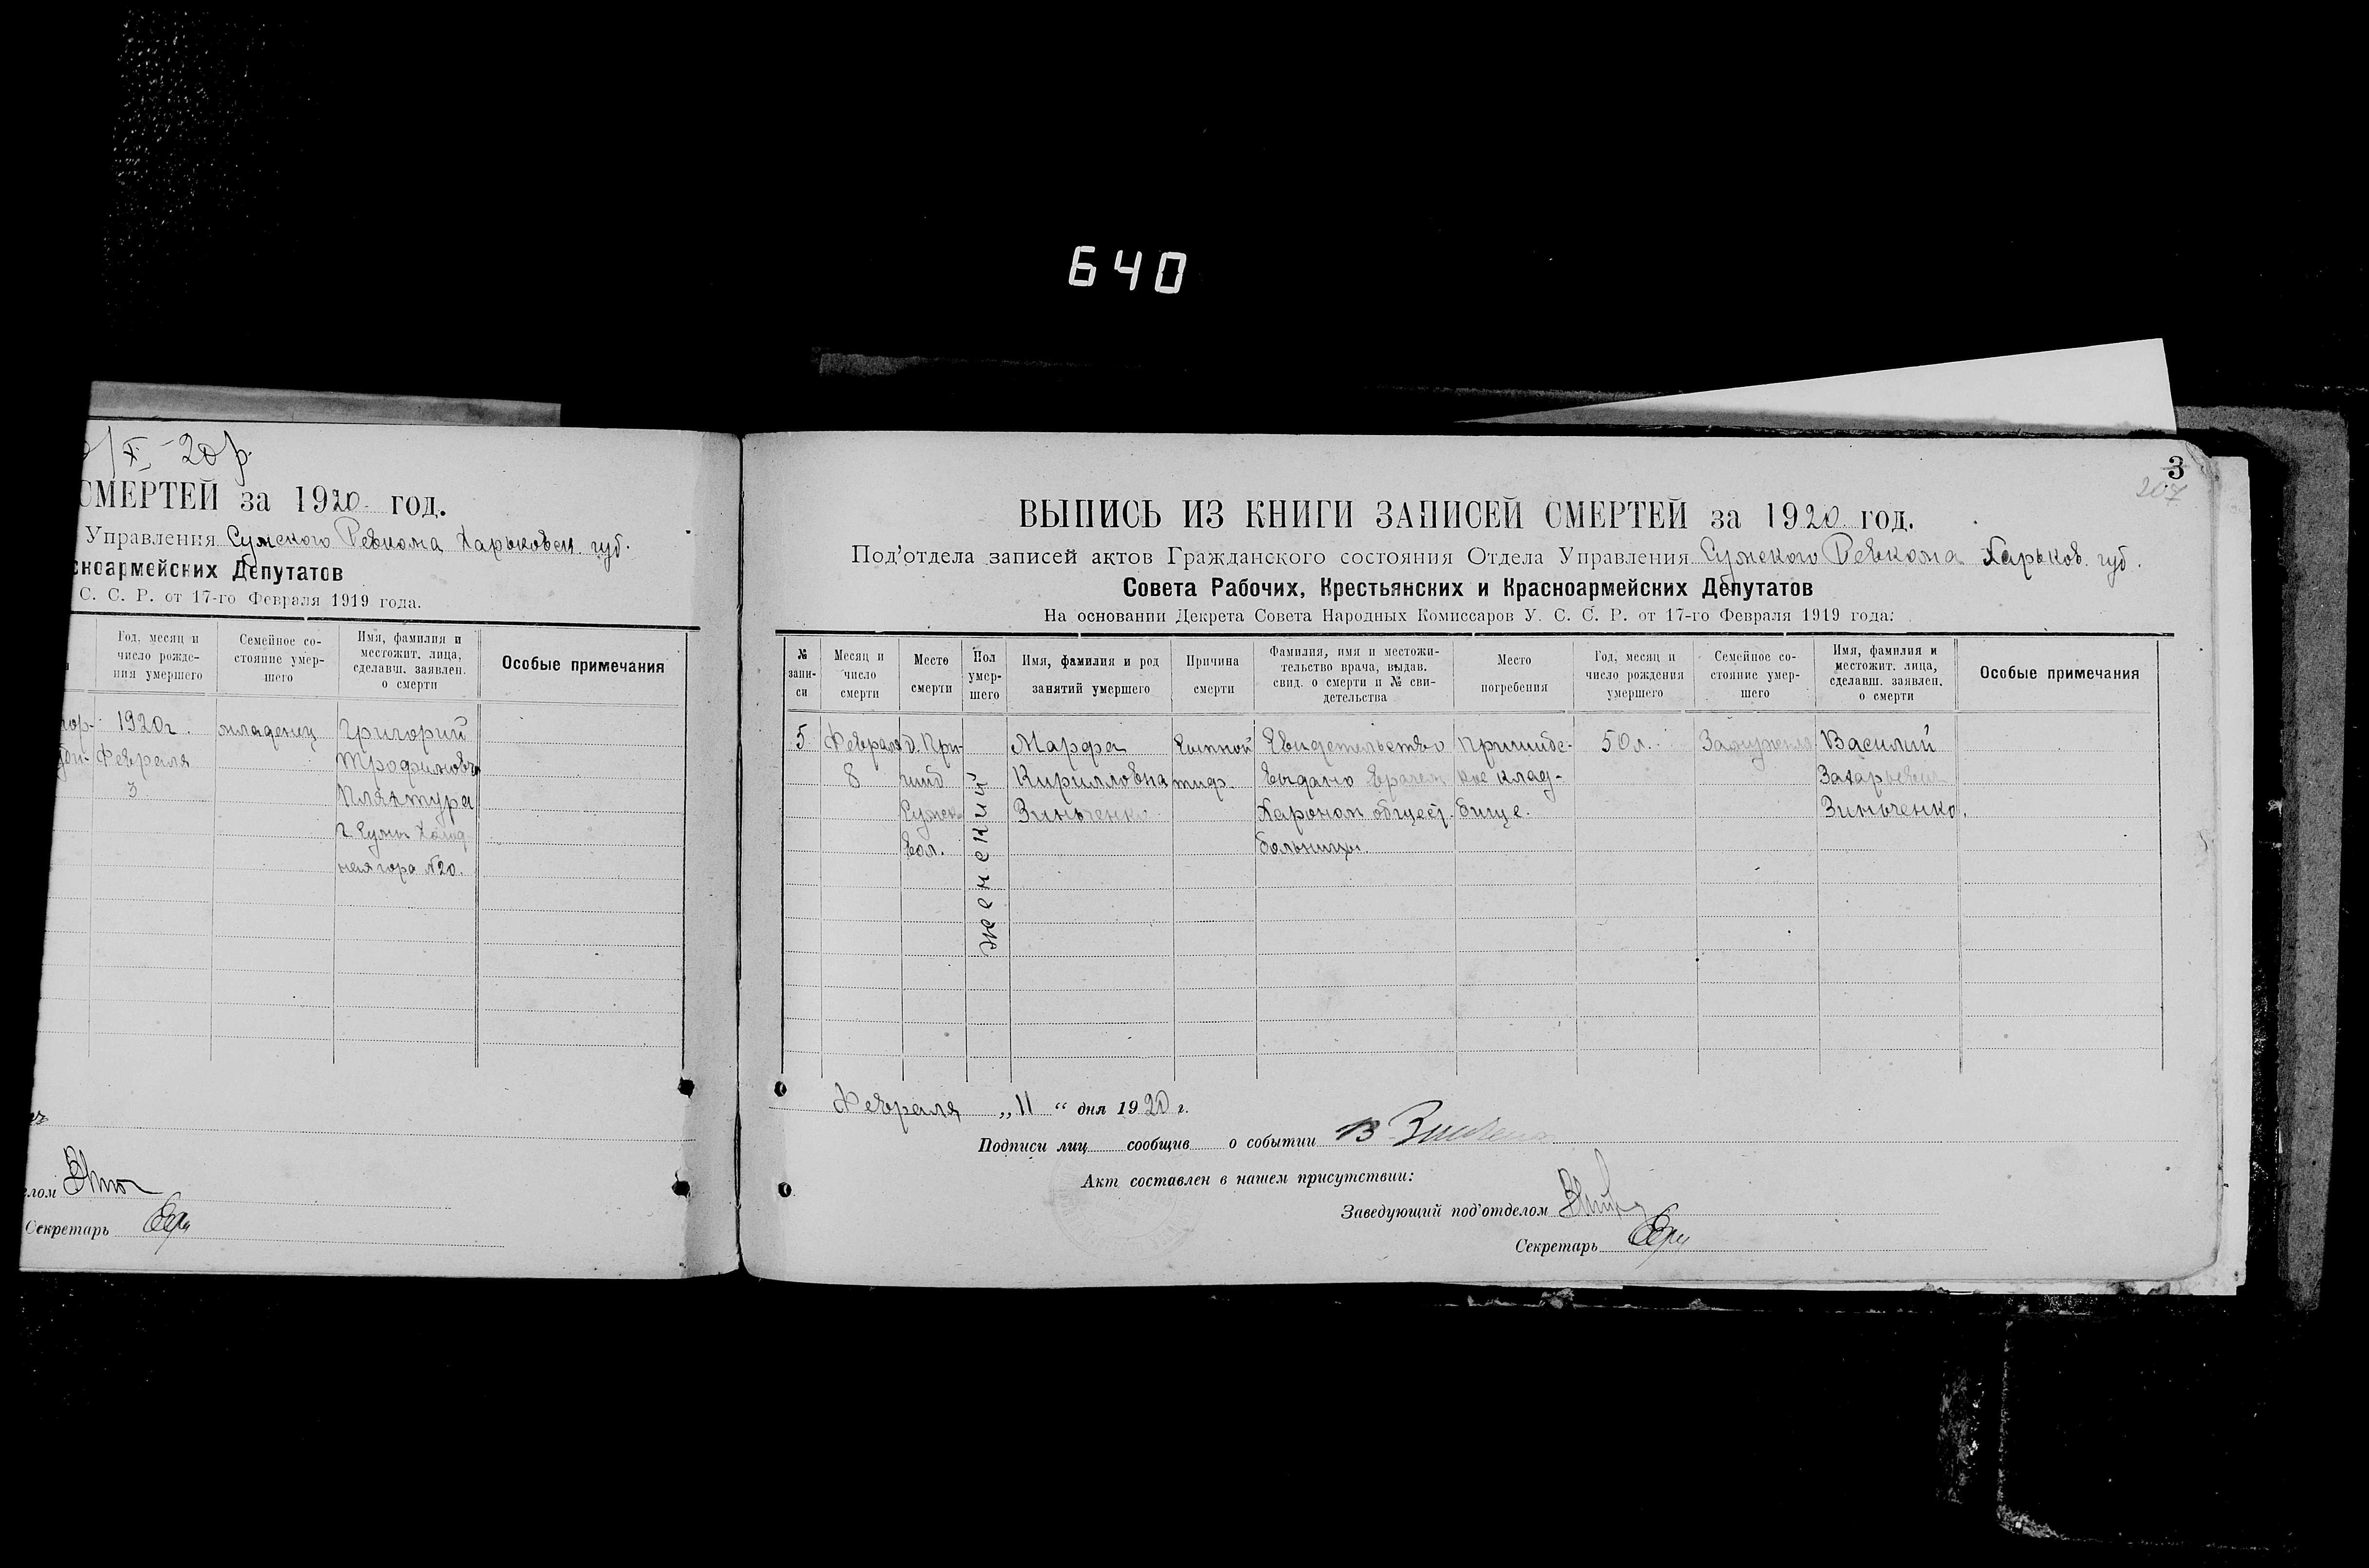 640
/X - 20 р.
СМЕРТЕЙ за 1920 год.
Управления Сумского Ревкома Харьковск. губ.
сноармейских Депутатов
С. С. Р. от 17-го Февраля 1919 года.
Год, месяц и число рожде- ния умершего
Семейное со- стояние умер- шего
Имя, фамилия и местожит. лица, сделавш. заявлен. о смерти
Особые примечания
1920г. младенец Григорий
Февраля Трофимович
3 Пляктура
г. Сумы Холод
ная гора №20.
лом
Секретарь
3
207
ВЫПИСЬ ИЗ КНИГИ ЗАПИСЕЙ СМЕРТЕЙ за 1920 год.
Под'отдела записей актов Гражданского состояния Отдела Управления Сумского Ревкома Харьков. губ.
Совета Рабочих, Крестьянских и Красноармейских Депутатов
На основании Декрета Совета Народных Комиссаров У. С. С. Р. от 17-го Февраля 1919 года:
№ запи- си
Месяц и число смерти
Место смерти
Пол умер- шего
Имя, фамилия и род занятий умершего
Причина смерти
Фамилия, имя и местожи- тельство врача, выдав. свид. о смерти и № сви- детельства
Место погребения
Год, месяц и число рождения умершего
Семейное со- стояние умер- шего
Имя, фамилия и местожит. лица, сделавш. заявлен. о смерти
Особые примечания
5 Февраля д. При- Марфа сыпной Свидетельство Пришибс- 50 л. Замужняя Василий
8 шиб Кирилловна тиф. выдано врачем кое клад- Захарьевич
Сумск. Зинченко общест. бище. Зинченко.
вол. больницы.
женский
Февраля „11“ дня 1920 г.
Подписи лиц сообщив о событии В Зинченко
Акт составлен в нашем присутствии:
Заведующий под'отделом
Секретарь